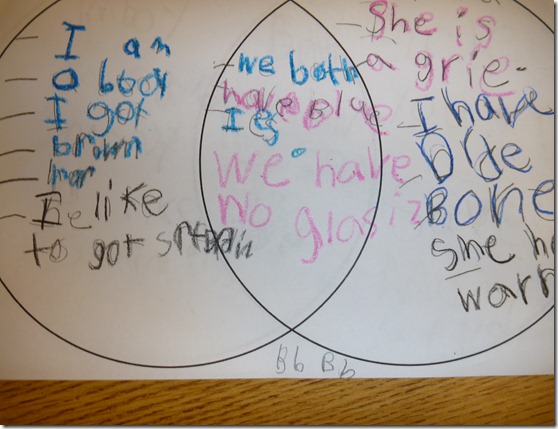 I am
a booy
I got
brown
har
He like
to got
we both
have Blue
Ies
We have
No glasiz
She is
a grie.
I have
blue
Bone
She h
warr
Bb Bb